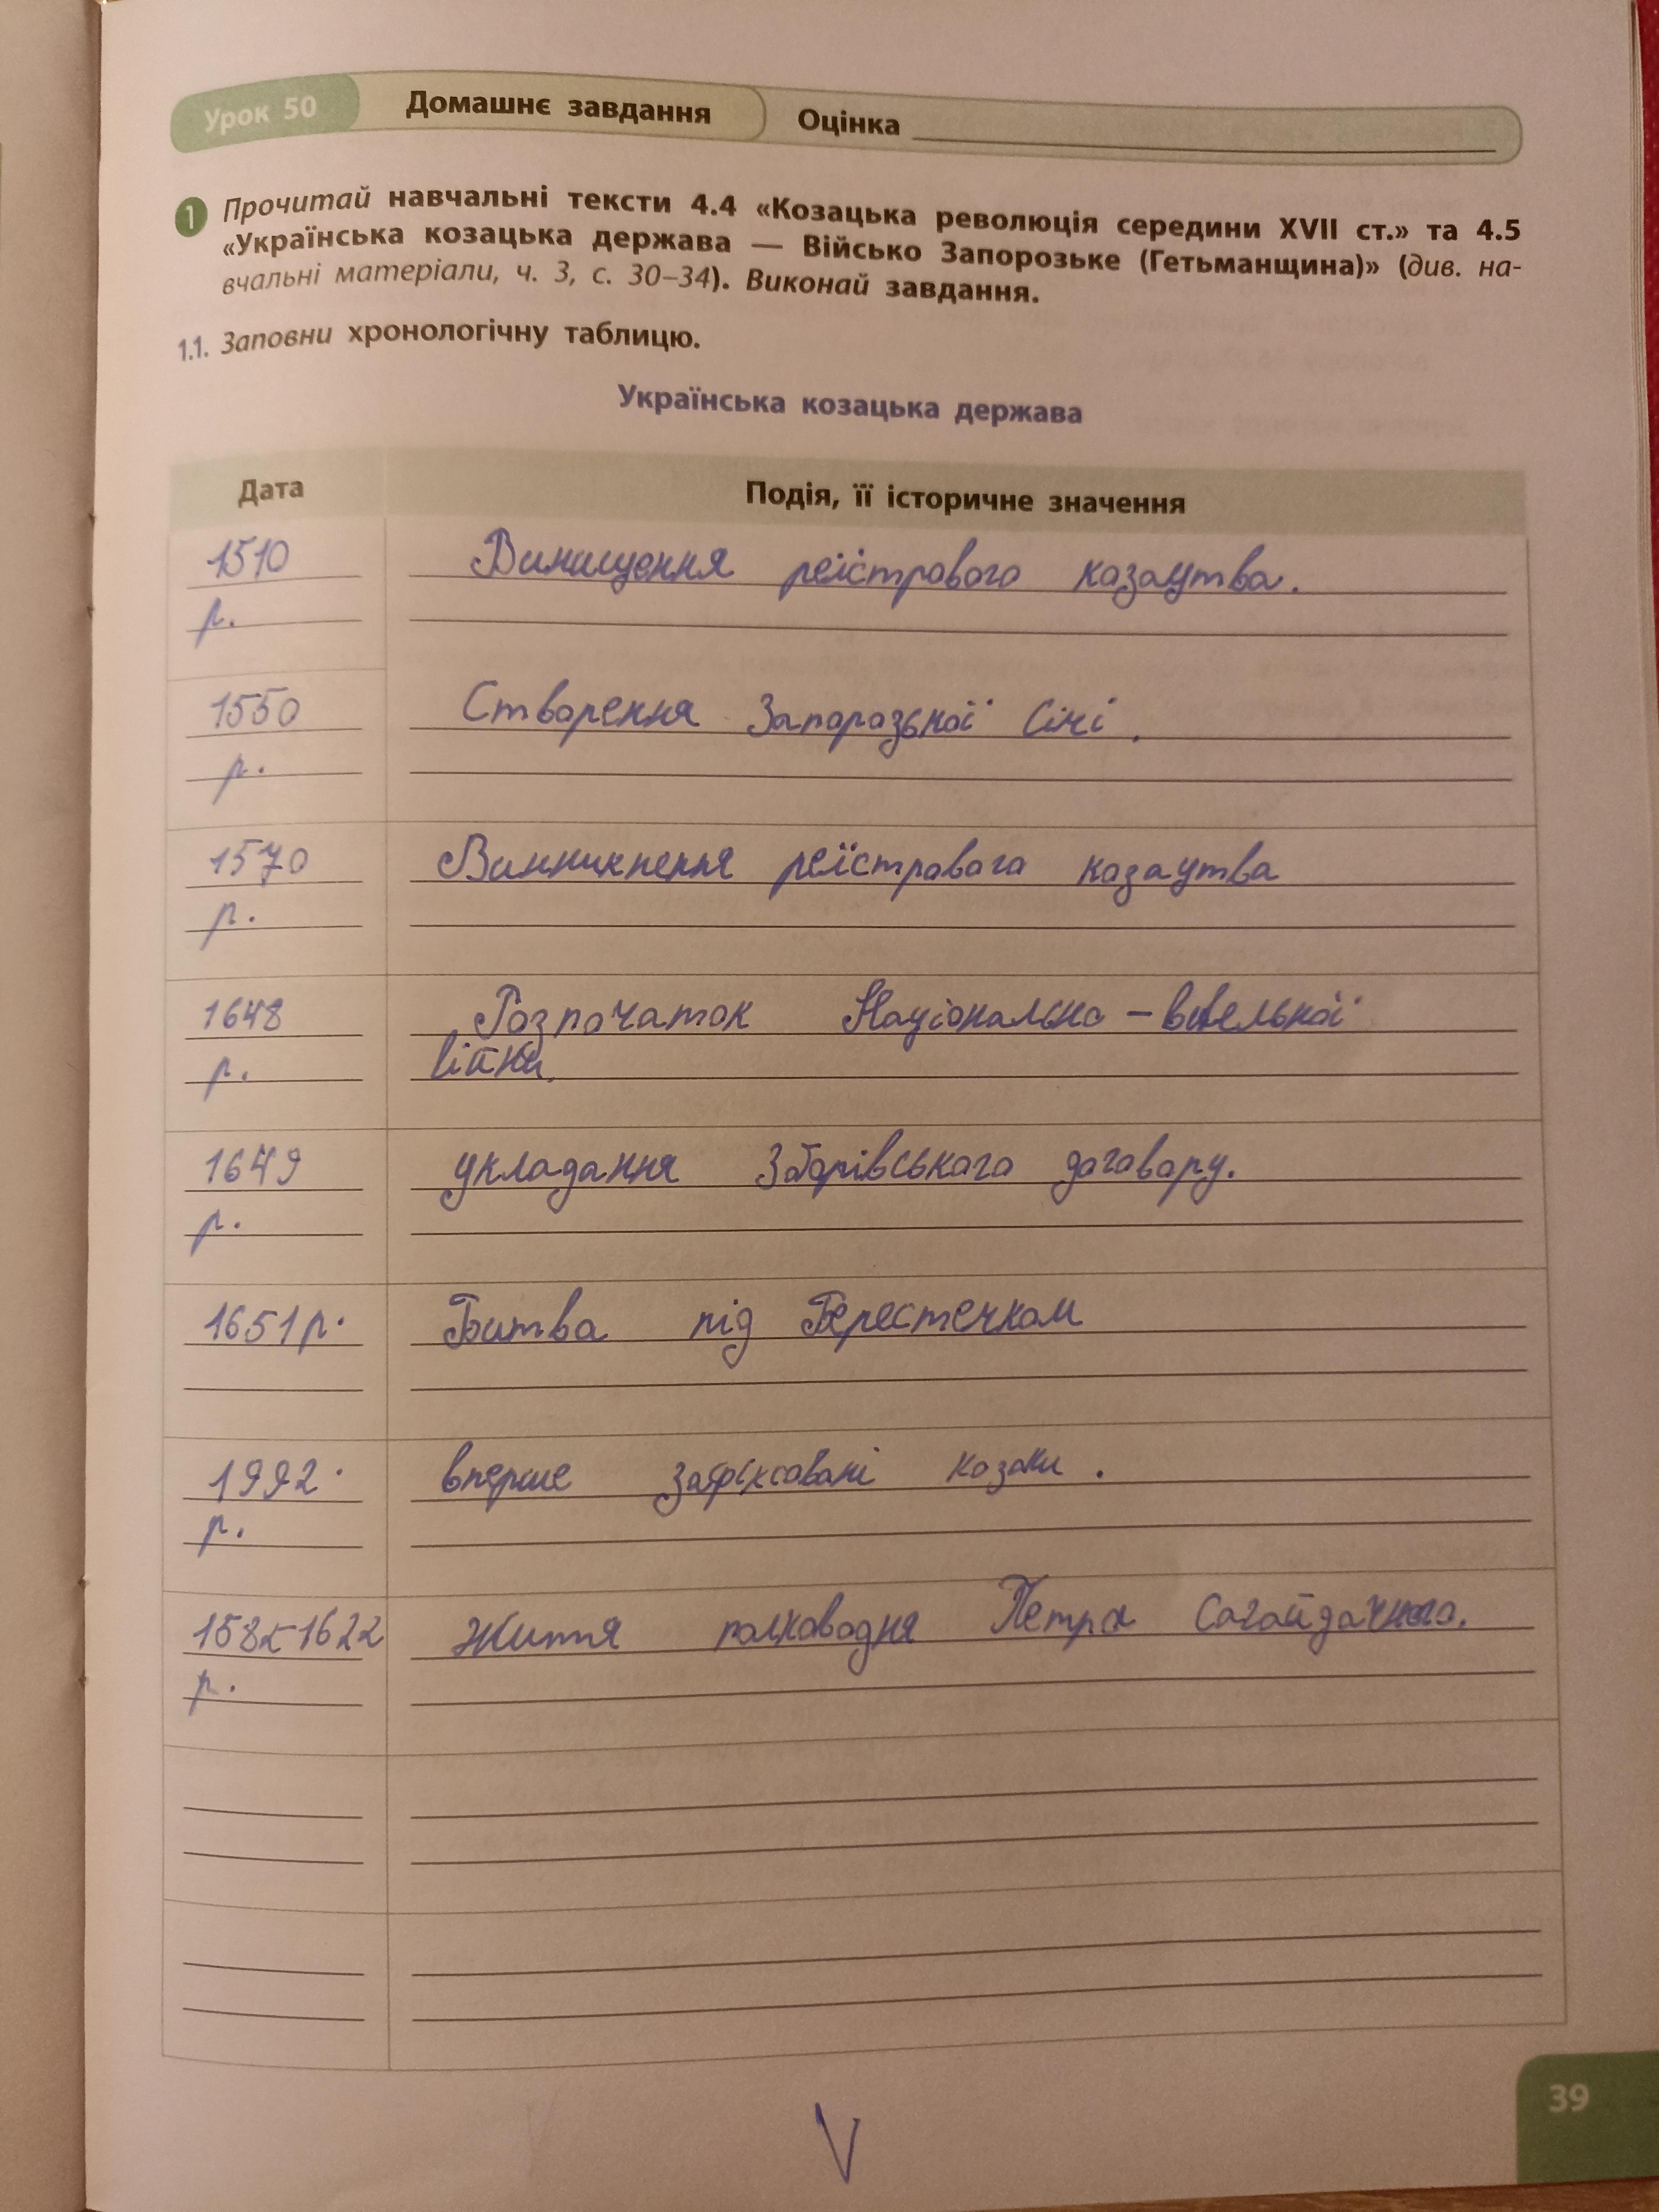 Урок 50 Домашнє завдання Оцінка
1 Прочитай навчальні тексти 4.4 «Козацька революція середини XVII ст.» та 4.5
«Українська козацька держава — Військо Запорозьке (Гетьманщина)» (див. на-
вчальні матеріали, ч. 3, с. 30–34). Виконай завдання.
1.1. Заповни хронологічну таблицю.
Українська козацька держава
Дата Подія, її історичне значення
1510 Винищення реїстрового казацтва.
р.
1550 Створення Запоразької Січі.
р.
1570 Винникнення реїстравага казацтва
р.
1648 Розпочаток Національно-
р. війни.
1649 укладання Зборівського договару.
р.
1651р. Битва під Берестечком
1992. вперше зафіксовані козаки.
р.
1582-1622 Життя полководця Петра Сагайдачного.
р.
39
V